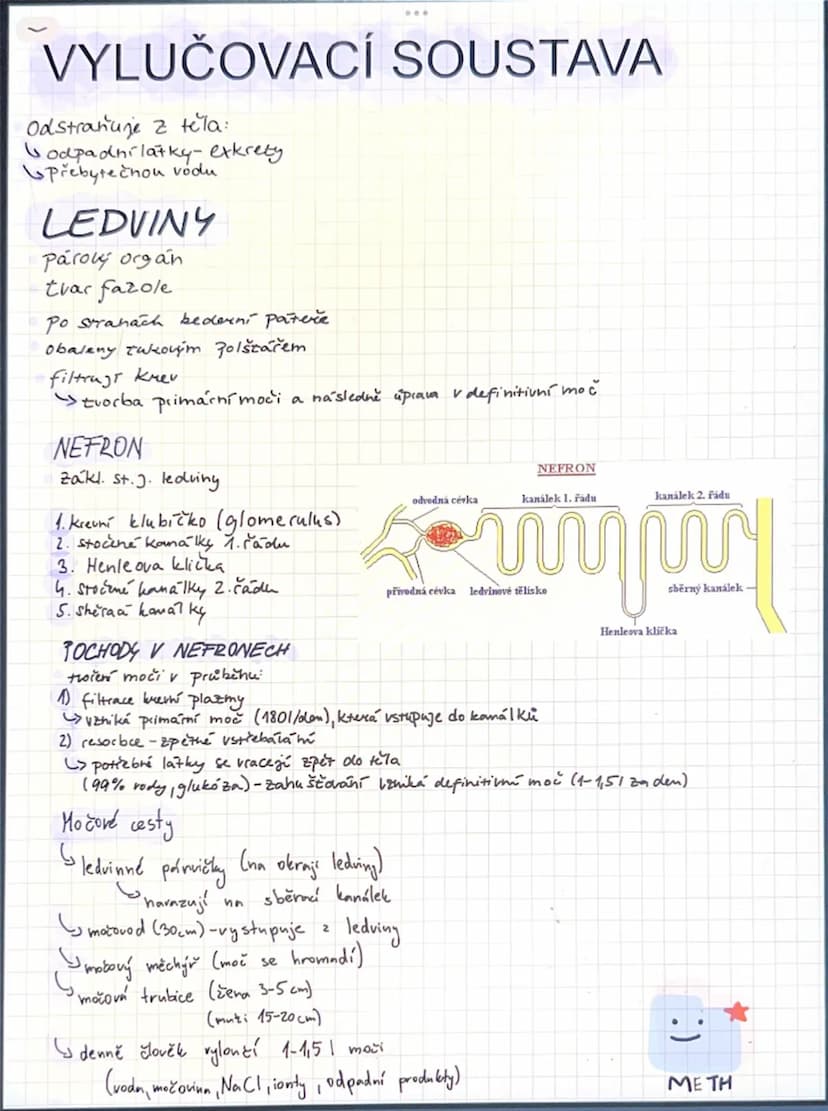 VYLUČOVACÍ SOUSTAVA
Odstraňuje z těla:
↳ odpadní látky - exkrety
↳ přebytečnou vodu
LEDVINY
párový orgán
tvar fazole
po stranách bederní páteře
obaleny tukovým polštářem
filtrují krev
↳ tvorba primární moči a následně úprava v definitivní moč
NEFRON
zákl. st. j. ledviny
1. krevní klubíčko (glomerulus)
2. stočené kanálky 1. řádu
3. Henleova klička
4. stočené kanálky 2. řádu
5. sběrací kanálky
NEFRON
odvodná cévka
kanálek 1. řádu
kanálek 2. řádu
přívodná cévka
ledvinové tělísko
sběrný kanálek
Henleova klíčka
POCHODY V NEFRONECH
tvoření moči v průběhu:
1) filtrace krevní plazmy
↳ vzniká primární moč (180l/den), která vstupuje do kanálků
2) resorbce - zpětné vstřebávání
↳ potřebné látky se vracejí zpět do těla
(99% vody, glukóza) - zahušťování vzniká definitivní moč (1-1,5l za den)
Močové cesty
↳ ledvinné pánvičky (na okraji ledviny)
↳ navazují na sběrací kanálek
↳ močovod (30cm) - vystupuje z ledviny
↳ močový měchýř (moč se hromadí)
↳ močová trubice (žena 3-5 cm)
(muži 15-20cm)
↳ denně člověk vyloučí 1-1,5 l moči
(voda, močovina, NaCl, ionty, odpadní produkty)
METH